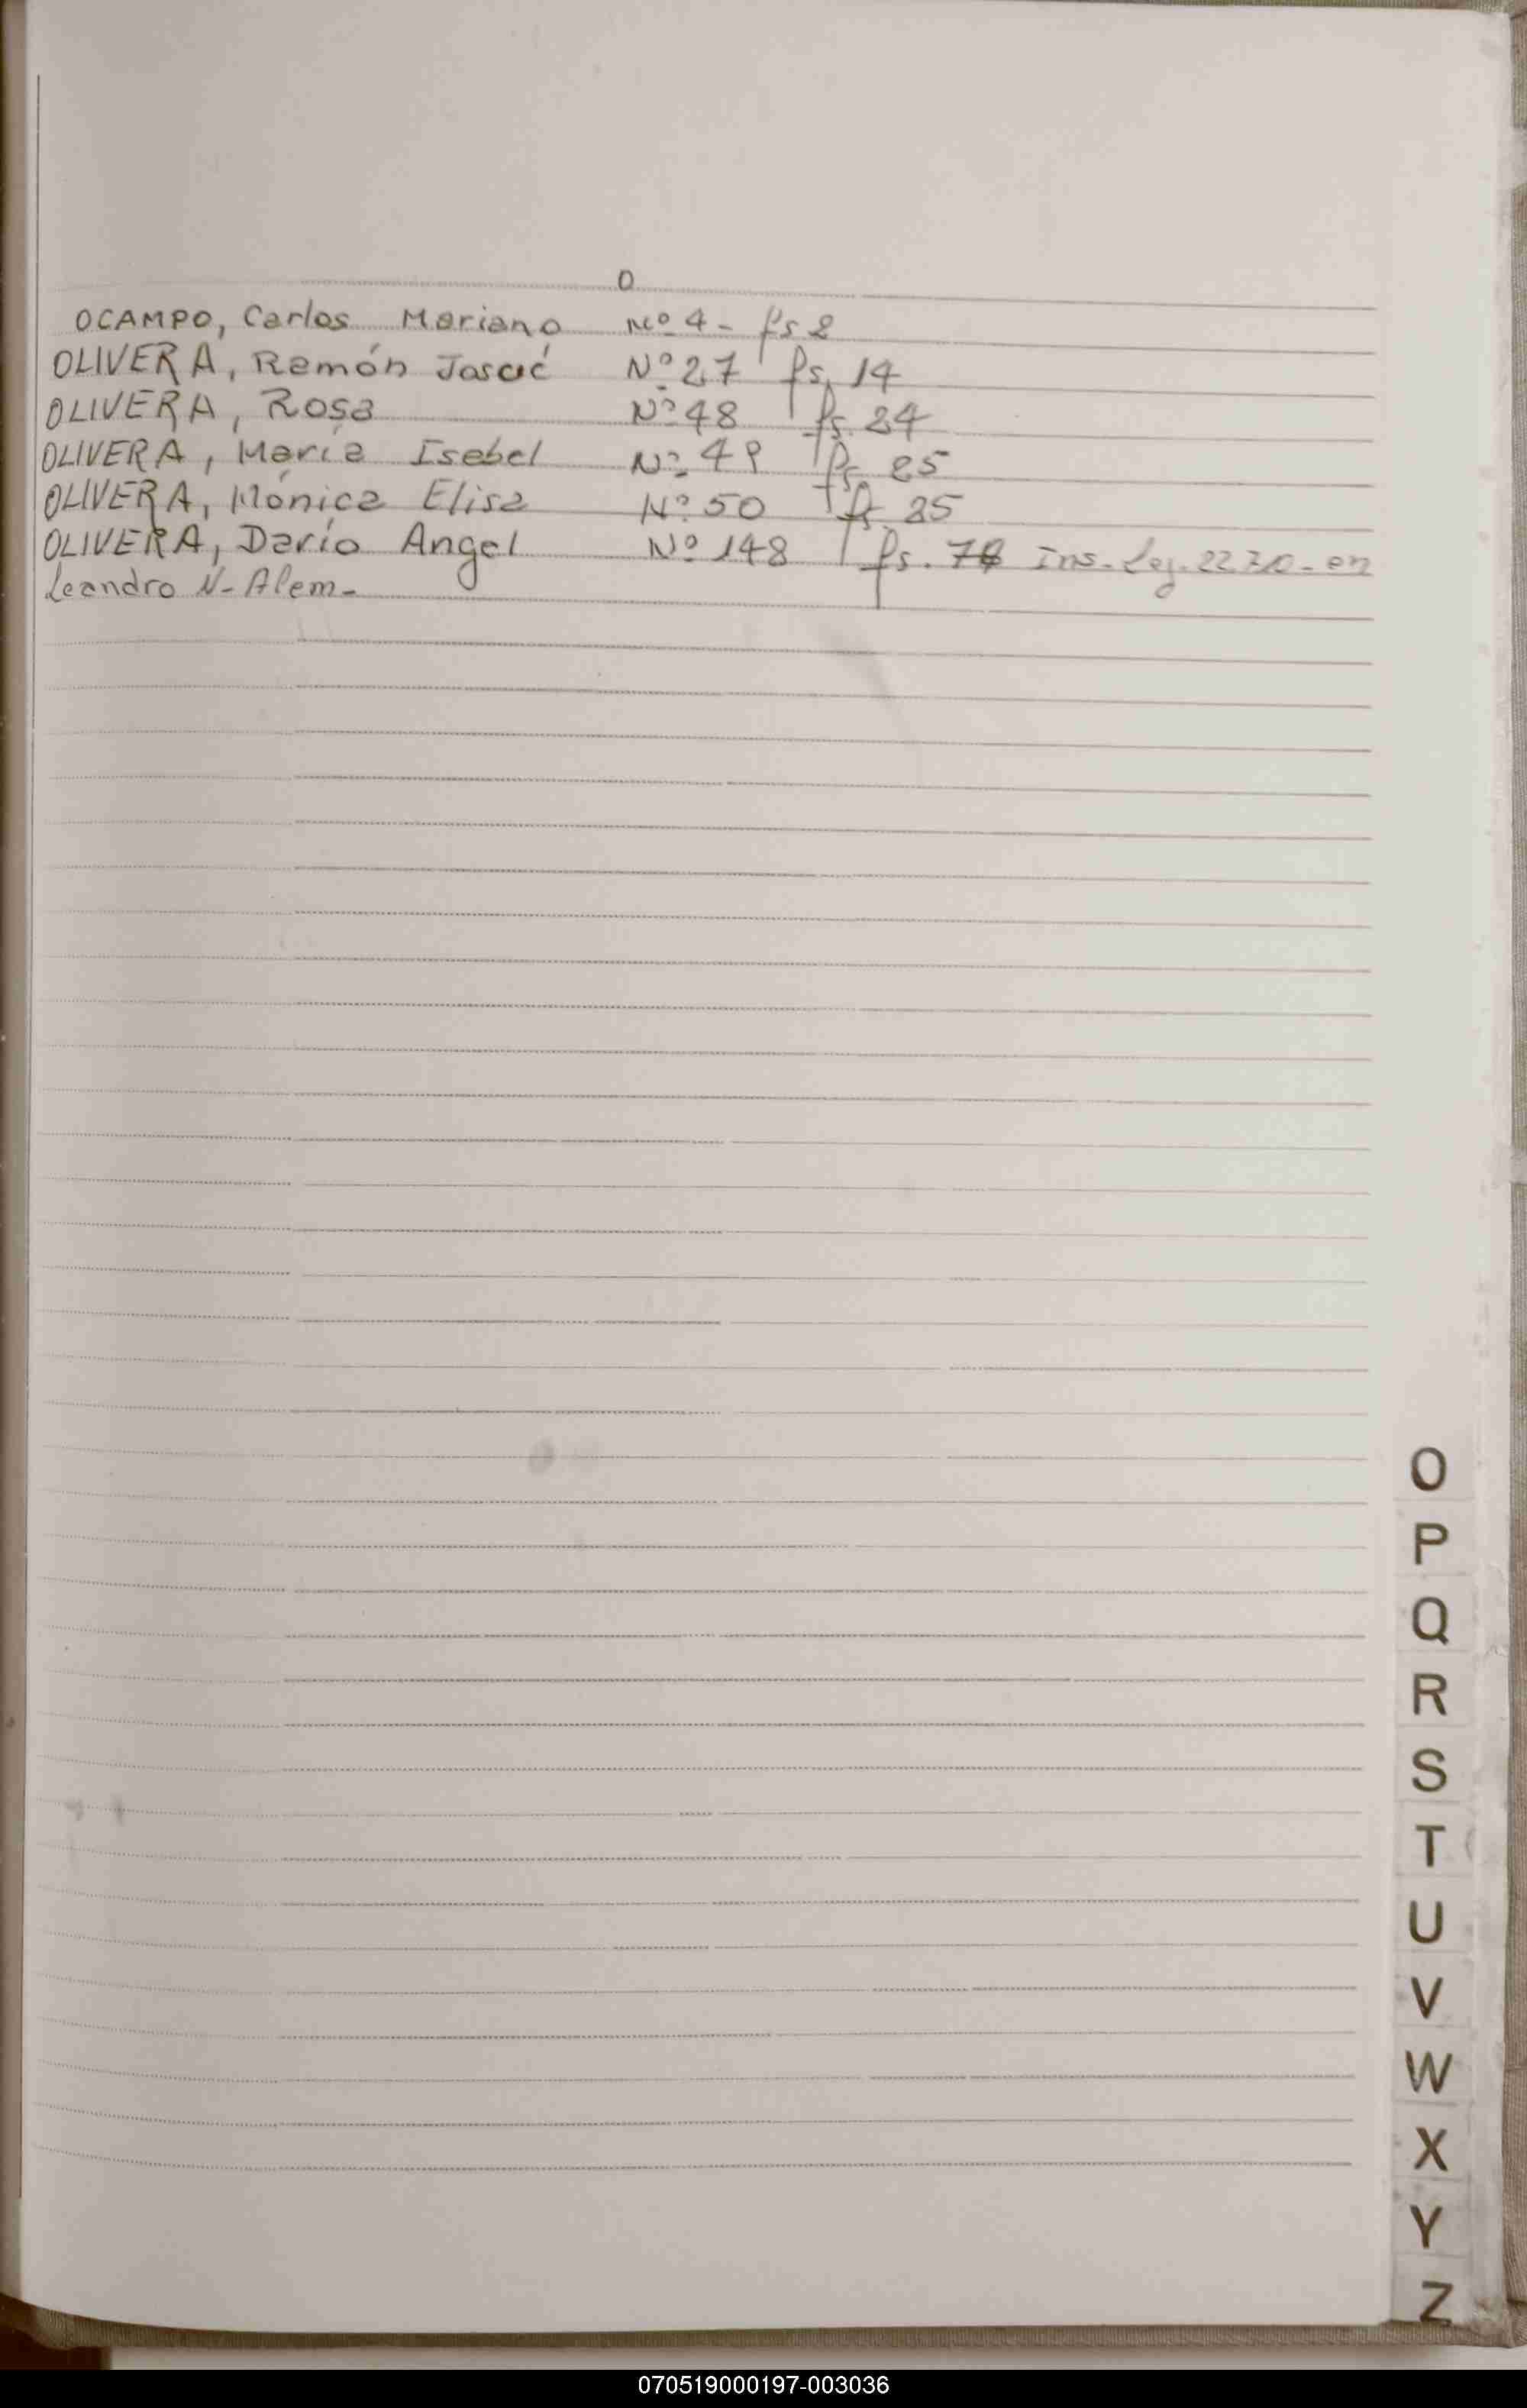 O
OCAMPO, Carlos Mariano Nº 4- fs 2
OLIVERA, Ramón José Nº 27 fs. 14
OLIVERA, Rosa Nº 48 fs. 24
OLIVERA, María Isabel Nº 49 fs. 25
OLIVERA, Mónica Elisa Nº 50 fs. 25
OLIVERA, Darío Angel Nº 148 fs. Ins. Ley. en
Leandro N. Alem-
O
P
Q
R
S
T
U
V
W
X
Y
Z
070519000197-003036